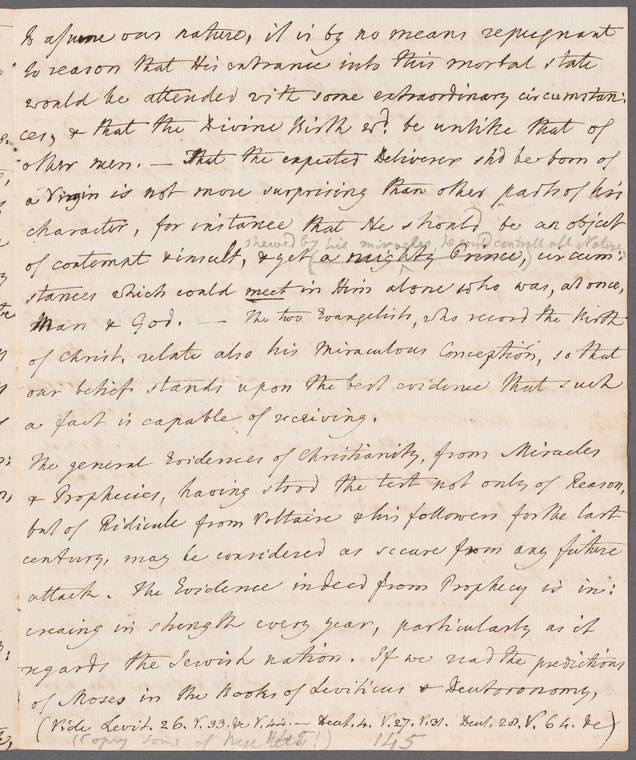 to assume our nature, it is by no means repugnant
to reason that His entrance into this mortal state
would be attended with some extraordinary circumstan:
ces, & that the Divine Birth wd. be unlike that of
other men. — That the expected Deliverer shd be born of
a Virgin is not more surprising than other parts of his
character, for instance that He should be an object
shewed by his miracles, he could controll all Nature
of contempt & insult, & yet (a mighty Prince,) circum:
stances which could meet in Him alone who was, at once,
Man & God. — The two Evangelists, who record the Birth
of Christ, relate also his Miraculous Conception, so that
our belief stands upon the best evidence that such
a fact is capable of receiving.
The general Evidences of Christianity, from Miracles
& Prophecies, having stood the test not only of Reason,
but of Ridicule from Voltaire & his followers for the last
century, may be considered as secure from any future
attack. The Evidence indeed from Prophecy is in:
creasing in strength every year, particularly as it
regards the Jewish nation. If we read the predictions
of Moses in the Books of Leviticus & Deutoronomy,
(Vide Levit. 26. V. 33. &c V. 44. — Deut. 4. V. 27. V. 31. Deut. 28. V. 64. &c)
(Copy some of these !) 145